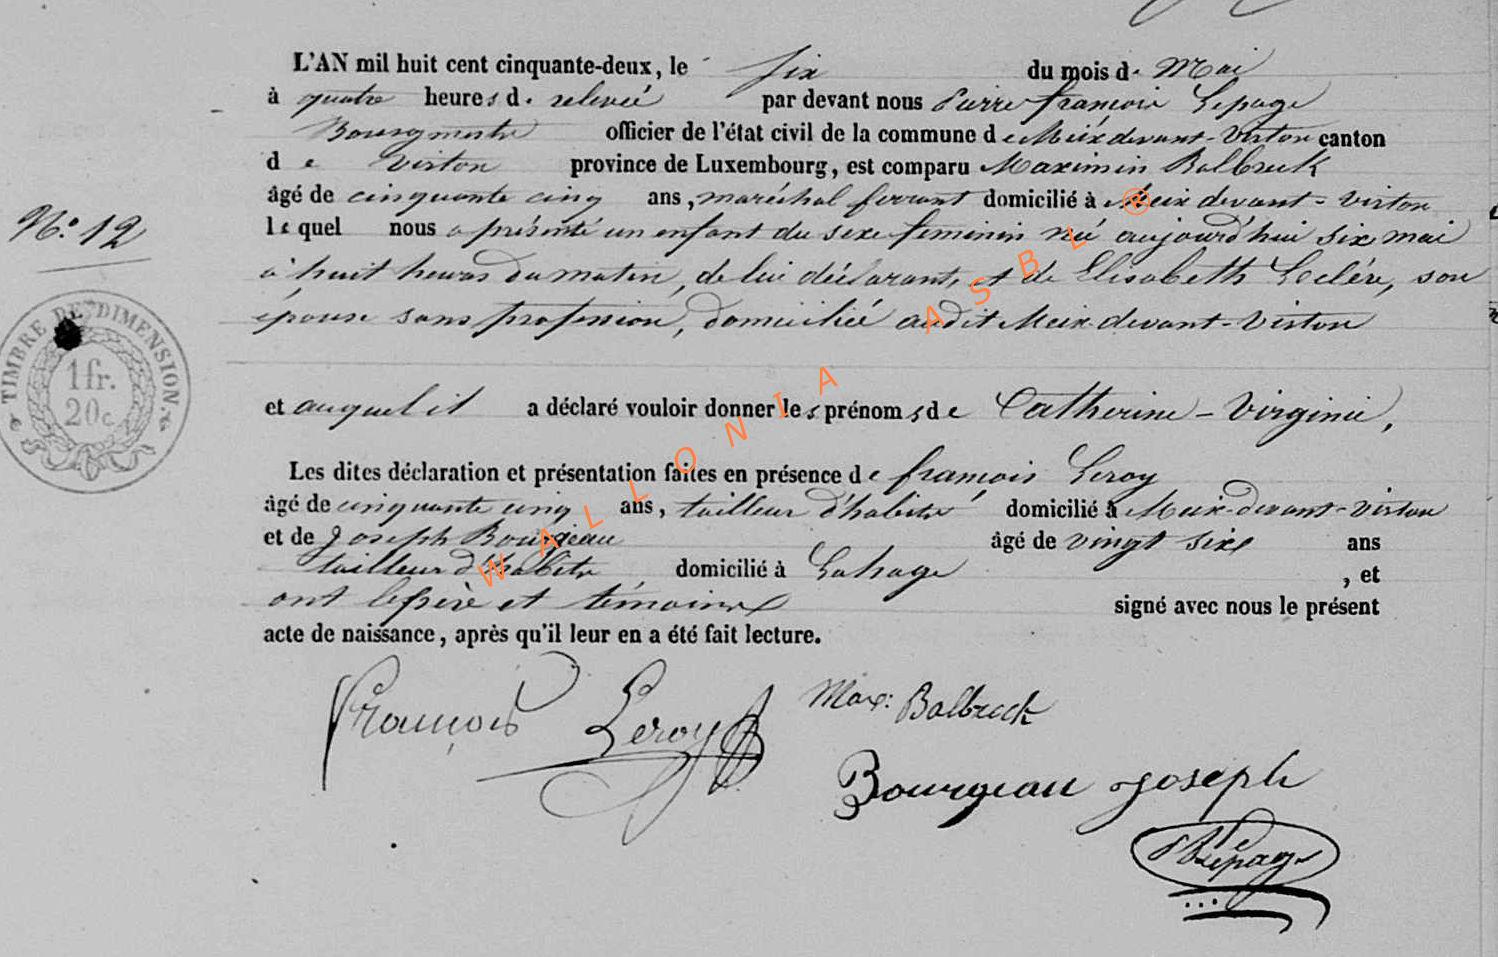 L'AN mil huit cent cinquante-deux, le six du mois de Mai
à quatre heures de relevée par devant nous Pierre françois Lepage
Bourgmestre officier de l'état civil de la commune de Meix devant-Virton canton
de Virton province de Luxembourg, est comparu Maximin Balbreck
âgé de cinquante cinq ans, maréchal ferrant domicilié à Meix devant-Virton
N.° 12
lequel nous a présenté un enfant du sexe feminin né aujourd'hui six mai
à huit heures du matin, de lui déclarant, et de Elisabeth Leclére, son
épouse sans profession, domiciliée audit Meix-devant-Virton
TIMBRE DE DIMENSION.
1 fr.
20 c
et auquel il a déclaré vouloir donner les prénoms de Catherine-Virginie,
Les dites déclaration et présentation faites en présence de françois Leroy
âgé de cinquante cinq ans, tailleur d'habits domicilié à Meix-devant-Virton
et de Joseph Bourgeau âgé de vingt six ans
tailleur d'habits domicilié à Lahage , et
ont le père et témoins signé avec nous le présent
acte de naissance, après qu'il leur en a été fait lecture.
François Leroy
Max: Balbreck
Bourgeau Joseph
Lepage
WALLONIA ASBL ®